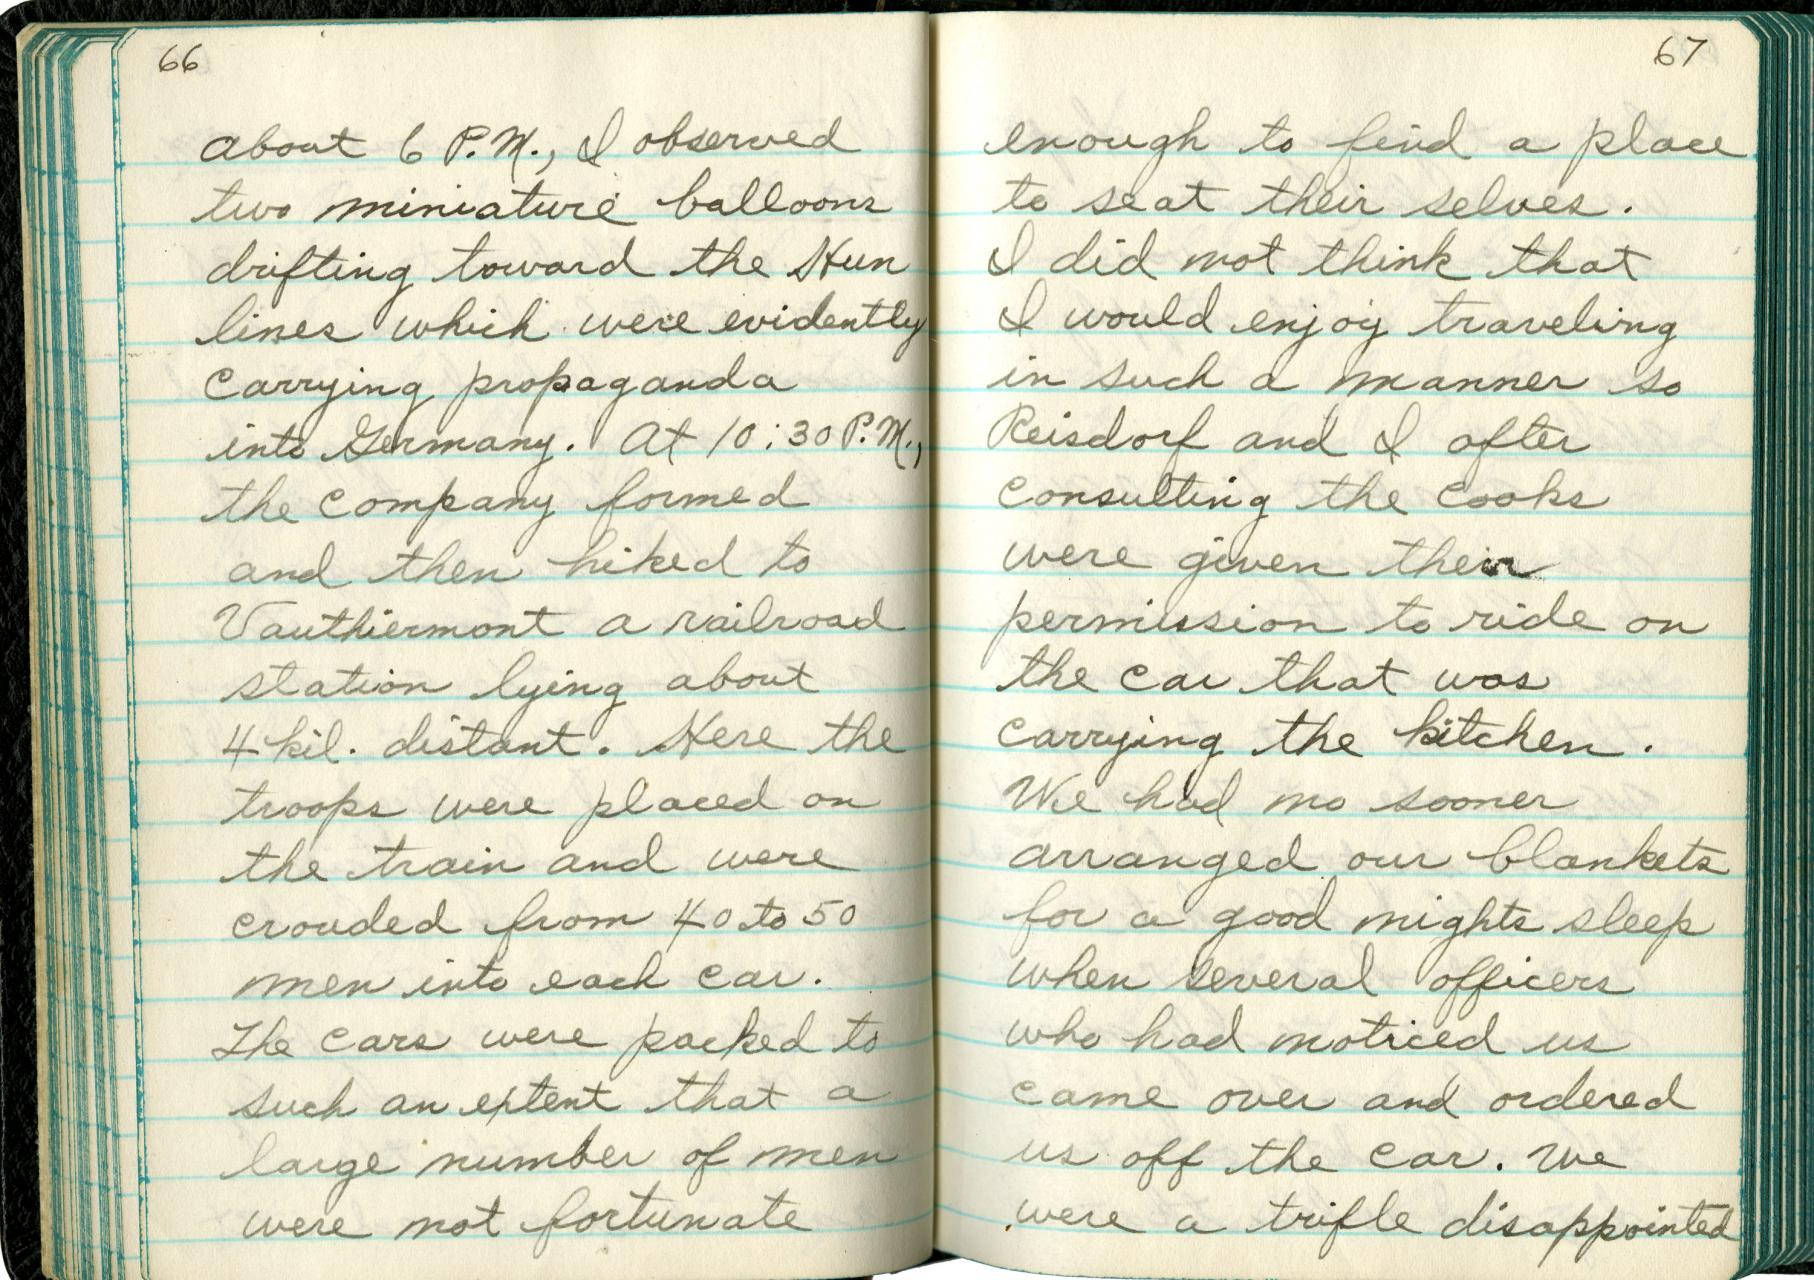 66
about 6 P.M., I observed
two miniature balloons
drifting toward the Hun
lines which were evidently
carrying propaganda
into Germany. At 10:30 P.M.,
the company formed
and then hiked to
Vauthiermont a railroad
station lying about
4 kil. distant. Here the
troops were placed on
the train and were
crouded from 40 to 50
men into each car.
The cars were packed to
such an extent that a
large number of men
were not fortunate
67
enough to find a place
to seat their selves.
I did not think that
I would enjoy traveling
in such a manner so
Reisdorf and I after
consulting the cooks
were given their
permission to ride on
the car that was
carrying the kitchen.
We had no sooner
arranged our blankets
for a good nights sleep
when several officers
who had noticed us
came over and ordered
us off the car. We
were a trifle disappointed